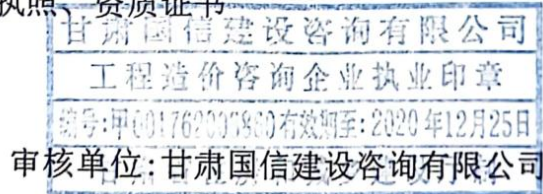 执照、资质证书
甘肃国信建设咨询有限公司
工程造价咨询企业执业印章
有效期至:2020年12月25日
审核单位:甘肃国信建设咨询有限公司